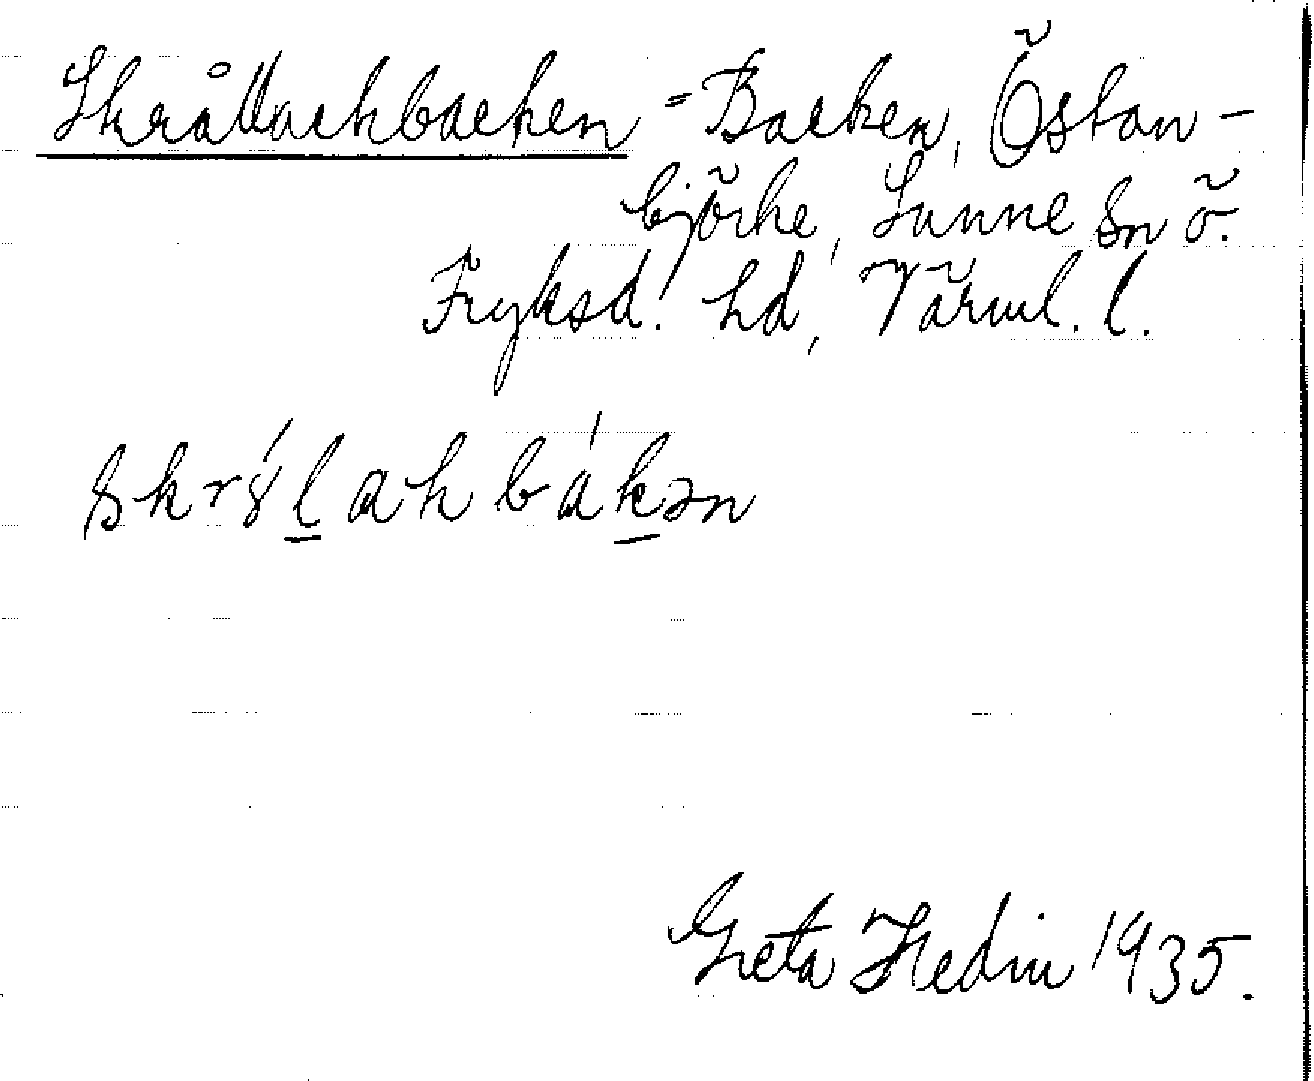 Skrållackbacken = Backen, Östan-
björke, Sunne sn ö.
Fryksd. hd, Värml. l.
skrɤ́l̲akbák̲ən
Greta Hedin 1935.